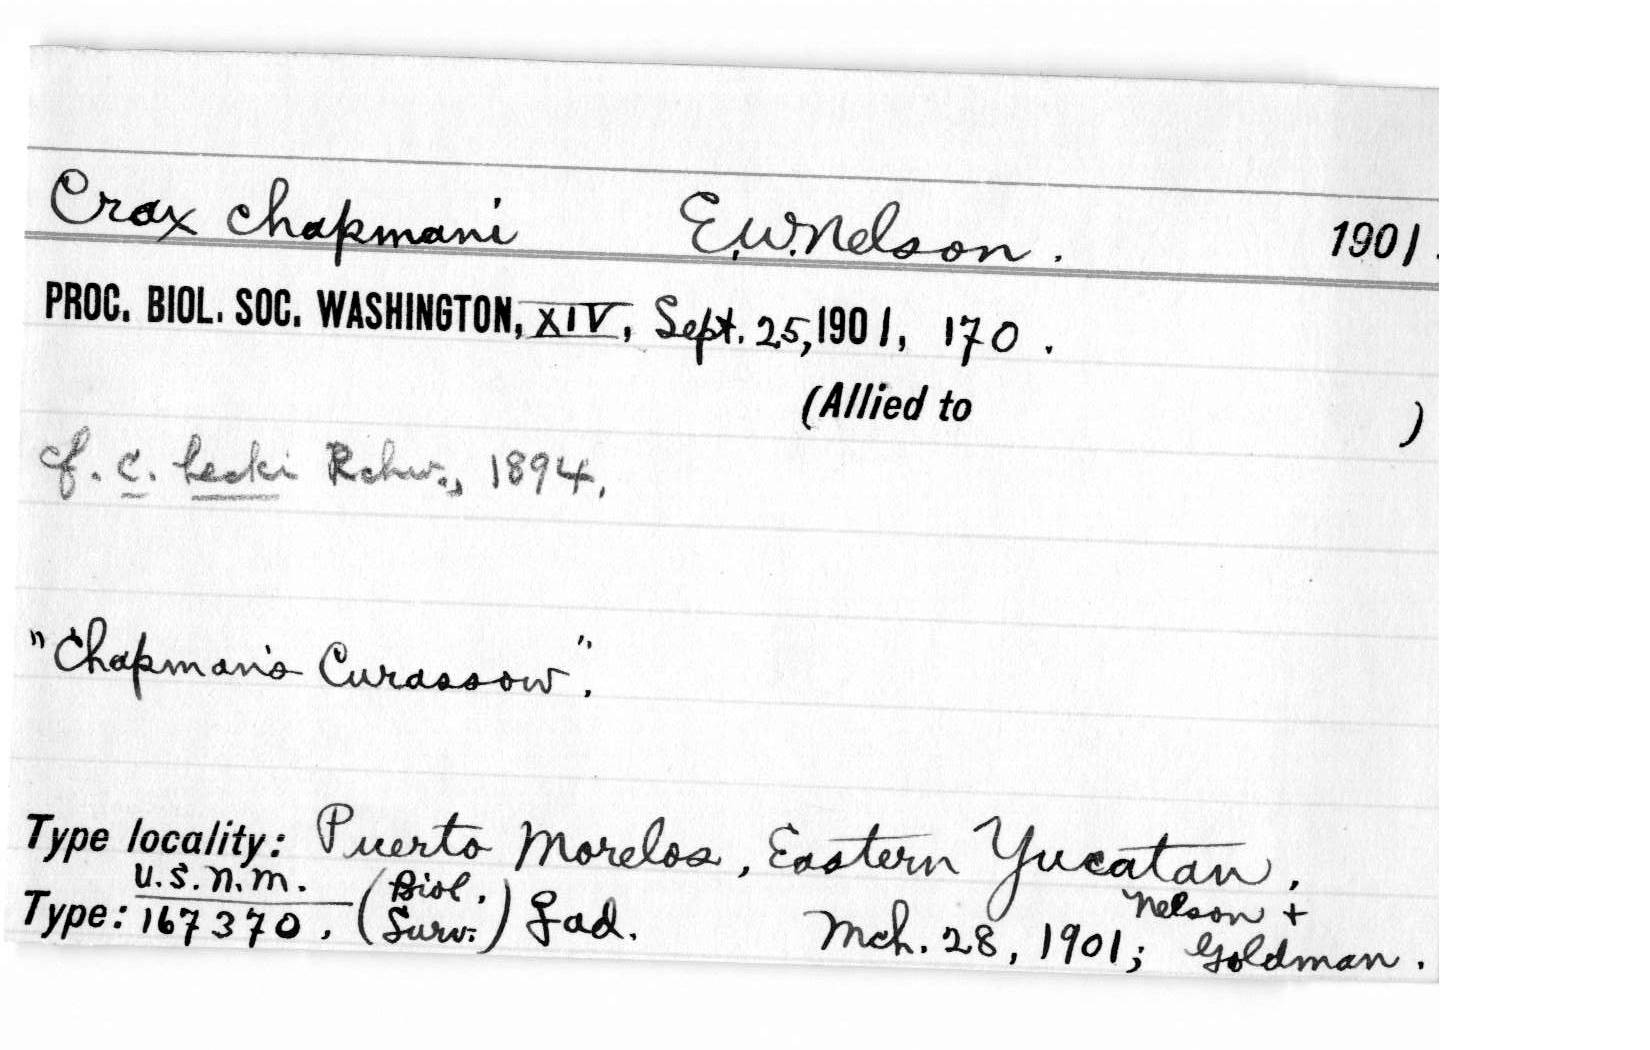 Crax chapmani E.W.Nelson. 1901.
PROC. BIOL. SOC. WASHINGTON, XIV, Sept. 25, 1901, 170.
(Allied to )
cf. C. hecki Rchw., 1894.
"Chapman's Curassow".
Type locality: Puerto Morelos, Eastern Yucatan.
Type: U.S.N.M. 167370. (Biol. Surv.) ♀ ad. Mch. 28, 1901; Nelson + Goldman.